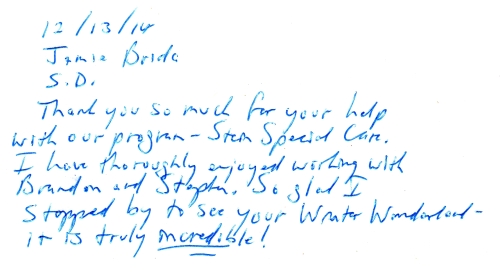 12/13/14
Jamie Brida
S.D.
Thank you so much for your help
with our program - Stem Special Care.
I have thoroughly enjoyed working with
Brandon and Stephen. So glad I
stopped by to see your Winter Wonderland -
it is truly incredible!